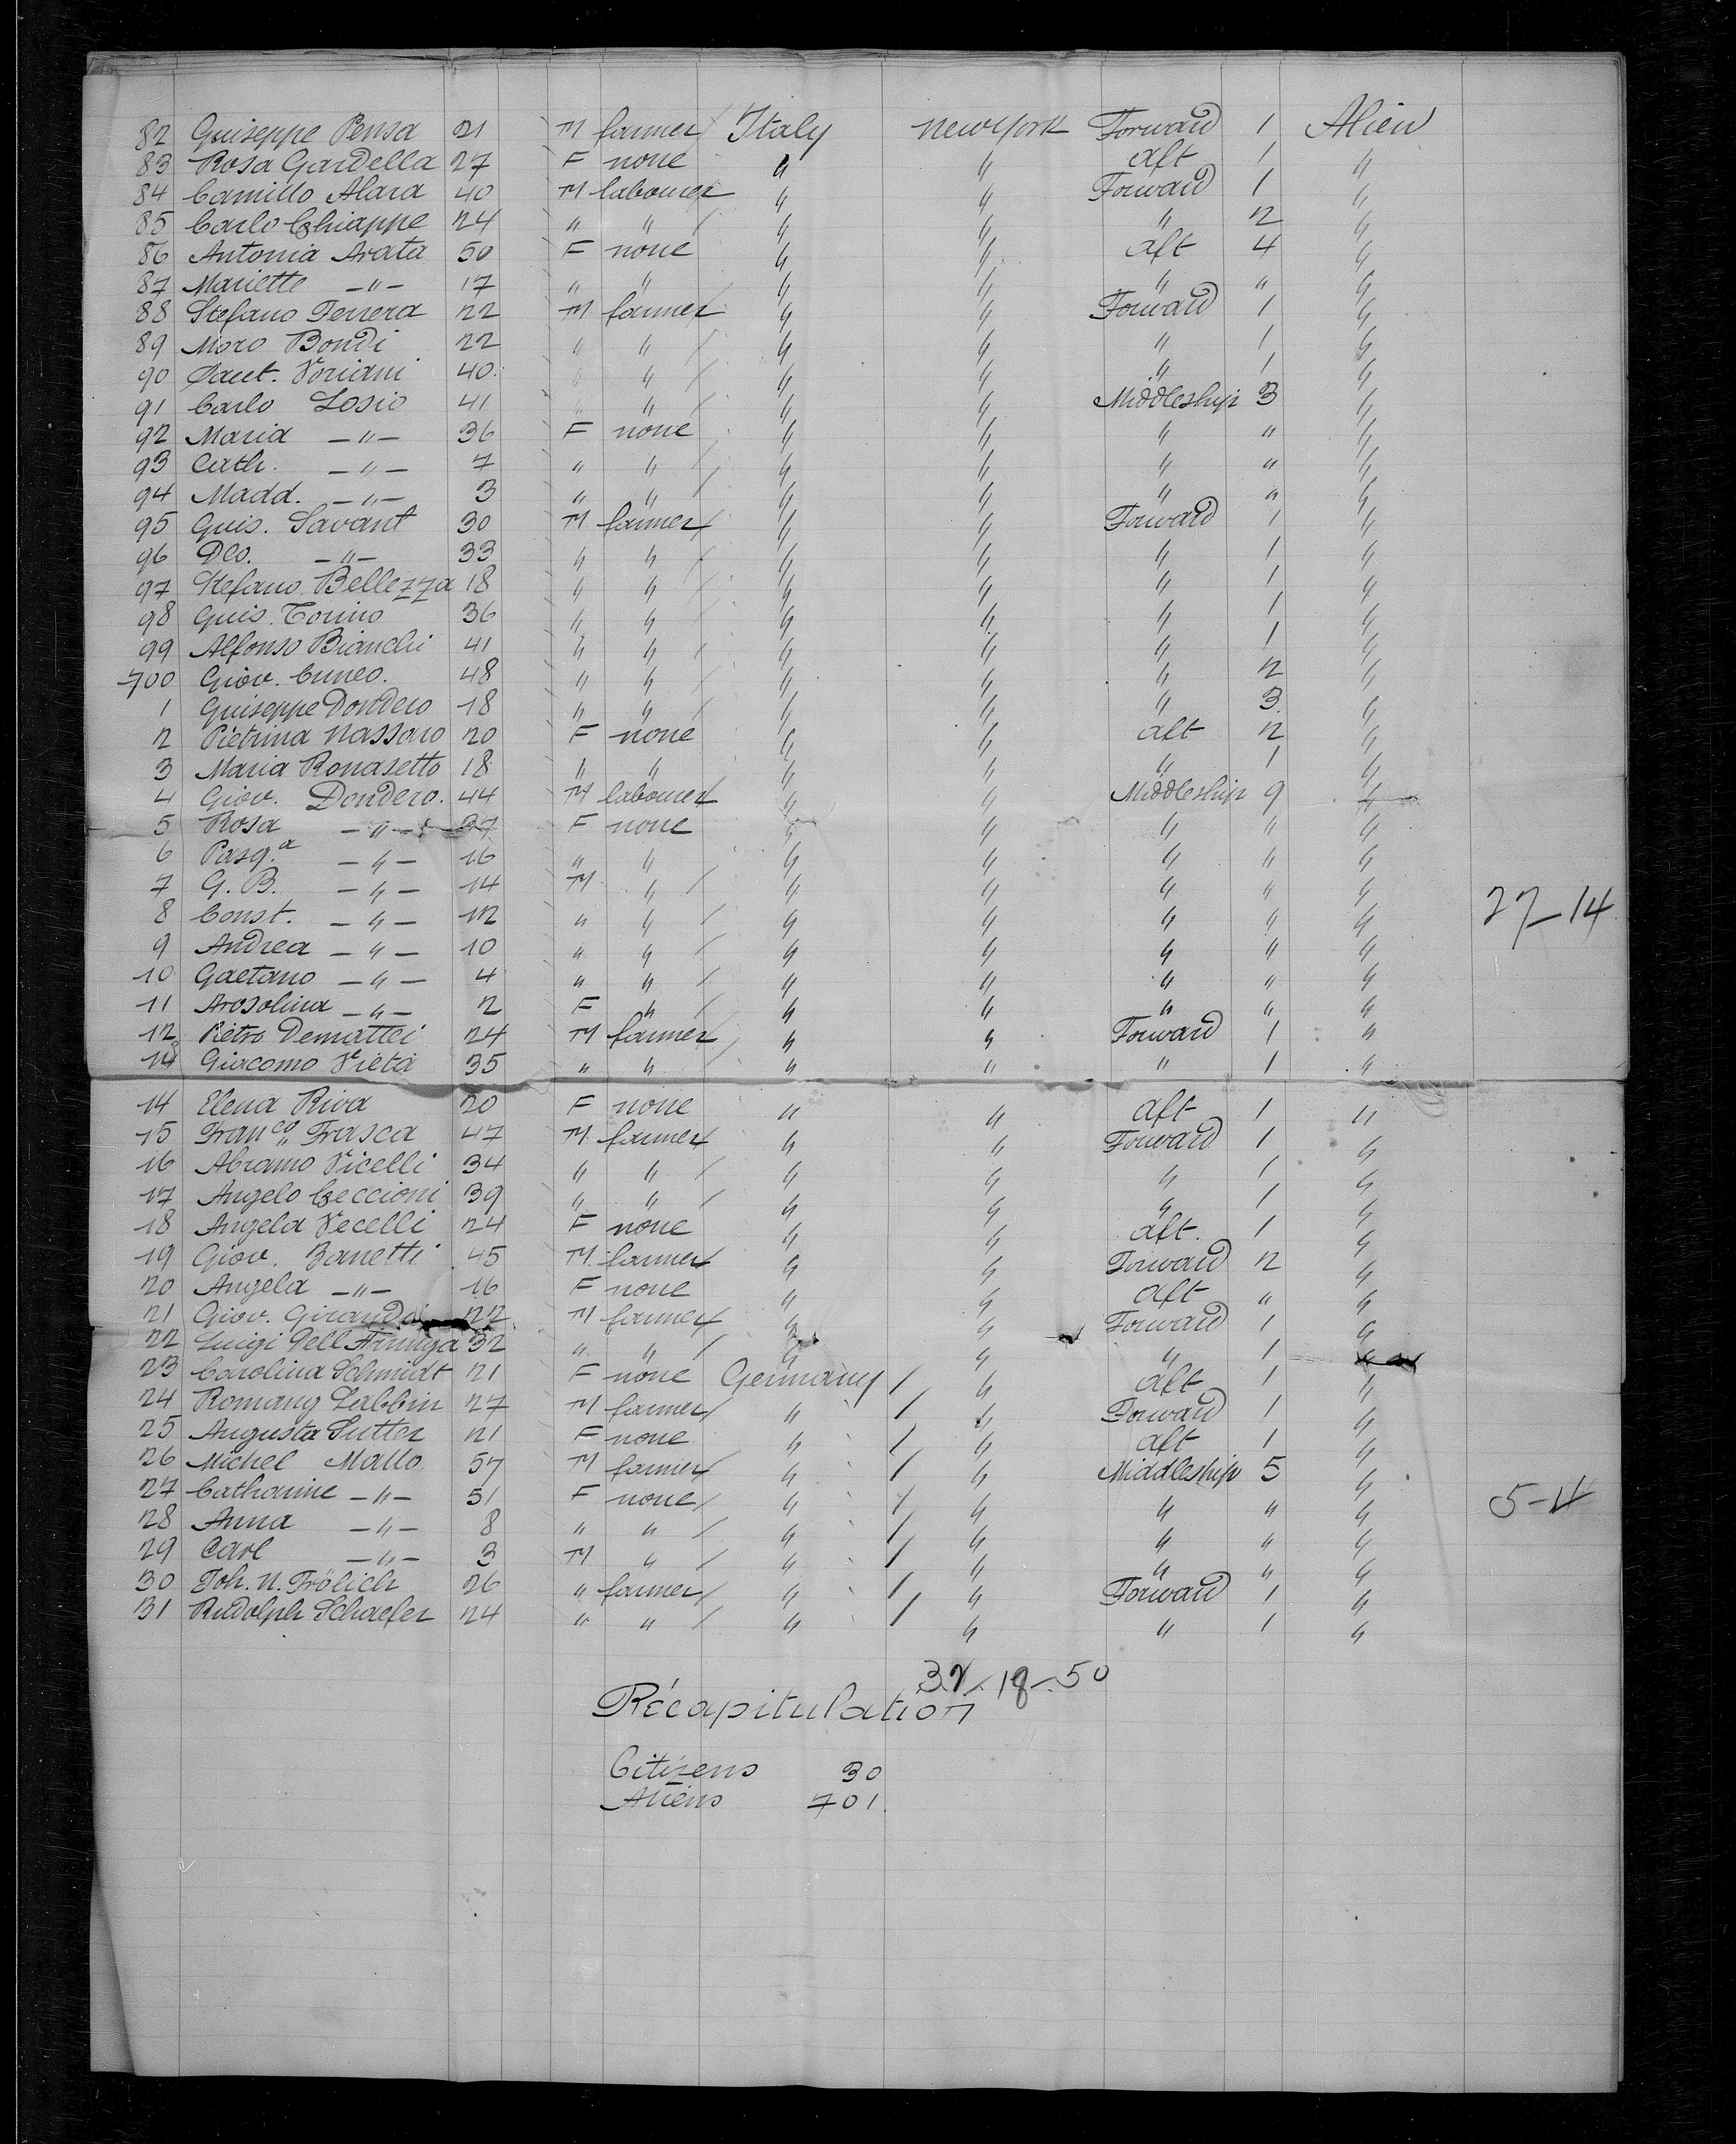 82 Guiseppe Pensa 21 M farmer Italy New York Forward 1 Alien
83 Rosa Gardella 27 F none " " aft 1 "
84 Camillo Alara 40 M labourer " " Forward 1 "
85 Carlo Chiappe 24 " " " " " 2 "
86 Antonia Arata 50 F none " " aft 4 "
87 Mariette -"- 17 " " " " " " "
88 Stefano Ferrera 22 M farmer " " Forward 1 "
89 Moro Bondi 22 " " " " " 1 "
90 Sant. Voriani 40 " " " " " 1 "
91 Carlo Losio 41 " " " " Middleship 3 "
92 Maria -"- 36 F none " " " " "
93 Cath. -"- 7 " " " " " " "
94 Madd. -"- 3 " " " " " " "
95 Guis. Savant 30 M farmer " " Forward 1 "
96 Dlo. -"- 33 " " " " " 1 "
97 Stefano Bellezza 18 " " " " " 1 "
98 Guis. Torino 36 " " " " " 1 "
99 Alfonso Bianchi 41 " " " " " 1 "
700 Giov. Cuneo. 48 " " " " " 2 "
1 Guiseppe Dondero 18 " " " " " 3 "
2 Pietrina Nassaro 20 F none " " aft 2 "
3 Maria Ronasetto 18 " " " " " 1 "
4 Giov. Dondero. 44 M labourer " " Middleship 9 "
5 Rosa -"- 37 F none " " " " "
6 Pasq.a -"- 16 " " " " " " "
7 G. B. -"- 14 M " " " " " "
8 Const. -"- 12 " " " " " " " 27-14
9 Andrea -"- 10 " " " " " " "
10 Gaetano -"- 4 " " " " " " "
11 Arosolina -"- 2 F " " " " " "
12 Pietro Demattei 24 M farmer " " Forward 1 "
14 Giacomo Vieta 35 " " " " " 1 "
14 Elena Riva 20 F none " " aft 1 "
15 Franco Frasca 47 M farmer " " Forward 1 "
16 Abramo Vicelli 34 " " " " " 1 "
17 Angelo Ceccioni 39 " " " " " 1 "
18 Angela Vecelli 24 F none " " aft. 1 "
19 Giov. Zanetti 45 M farmer " " Forward 2 "
20 Angela -"- 16 F none " " aft " "
21 Giov. Giraudi 22 M farmer " " Forward 1 "
22 Luigi 32 " " " " " 1 "
23 Carolina Schmidt 21 F none Germany " aft 1 "
24 Romang Labbin 27 M farmer " " Forward 1 "
25 Augusta Sutter 21 F none " " aft 1 "
26 Michel Mallo 57 M farmer " " Middleship 5 "
27 Catharine -"- 51 F none " " " " " 5-4
28 Anna -"- 8 " " " " " " "
29 Carl -"- 3 M " " " " " "
30 Joh. N. Frölich 26 " farmer " " Forward 1 "
31 Rudolph Schaefer 24 " " " " " 1 "
32-18-50
Récapitulation
Citizens 30
Aliens 701